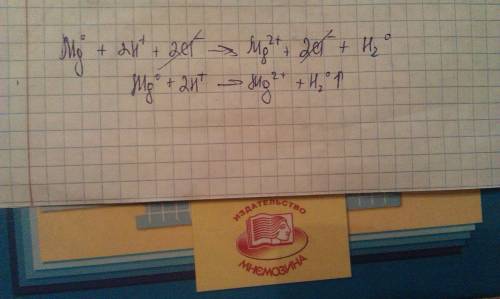 Mg⁰ + 2H⁺ + 2Cl⁻ → Mg²⁺ + 2Cl⁻ + H₂⁰
Mg⁰ + 2H⁺ → Mg²⁺ + H₂⁰↑
ИЗДАТЕЛЬСТВО
МНЕМОЗИНА